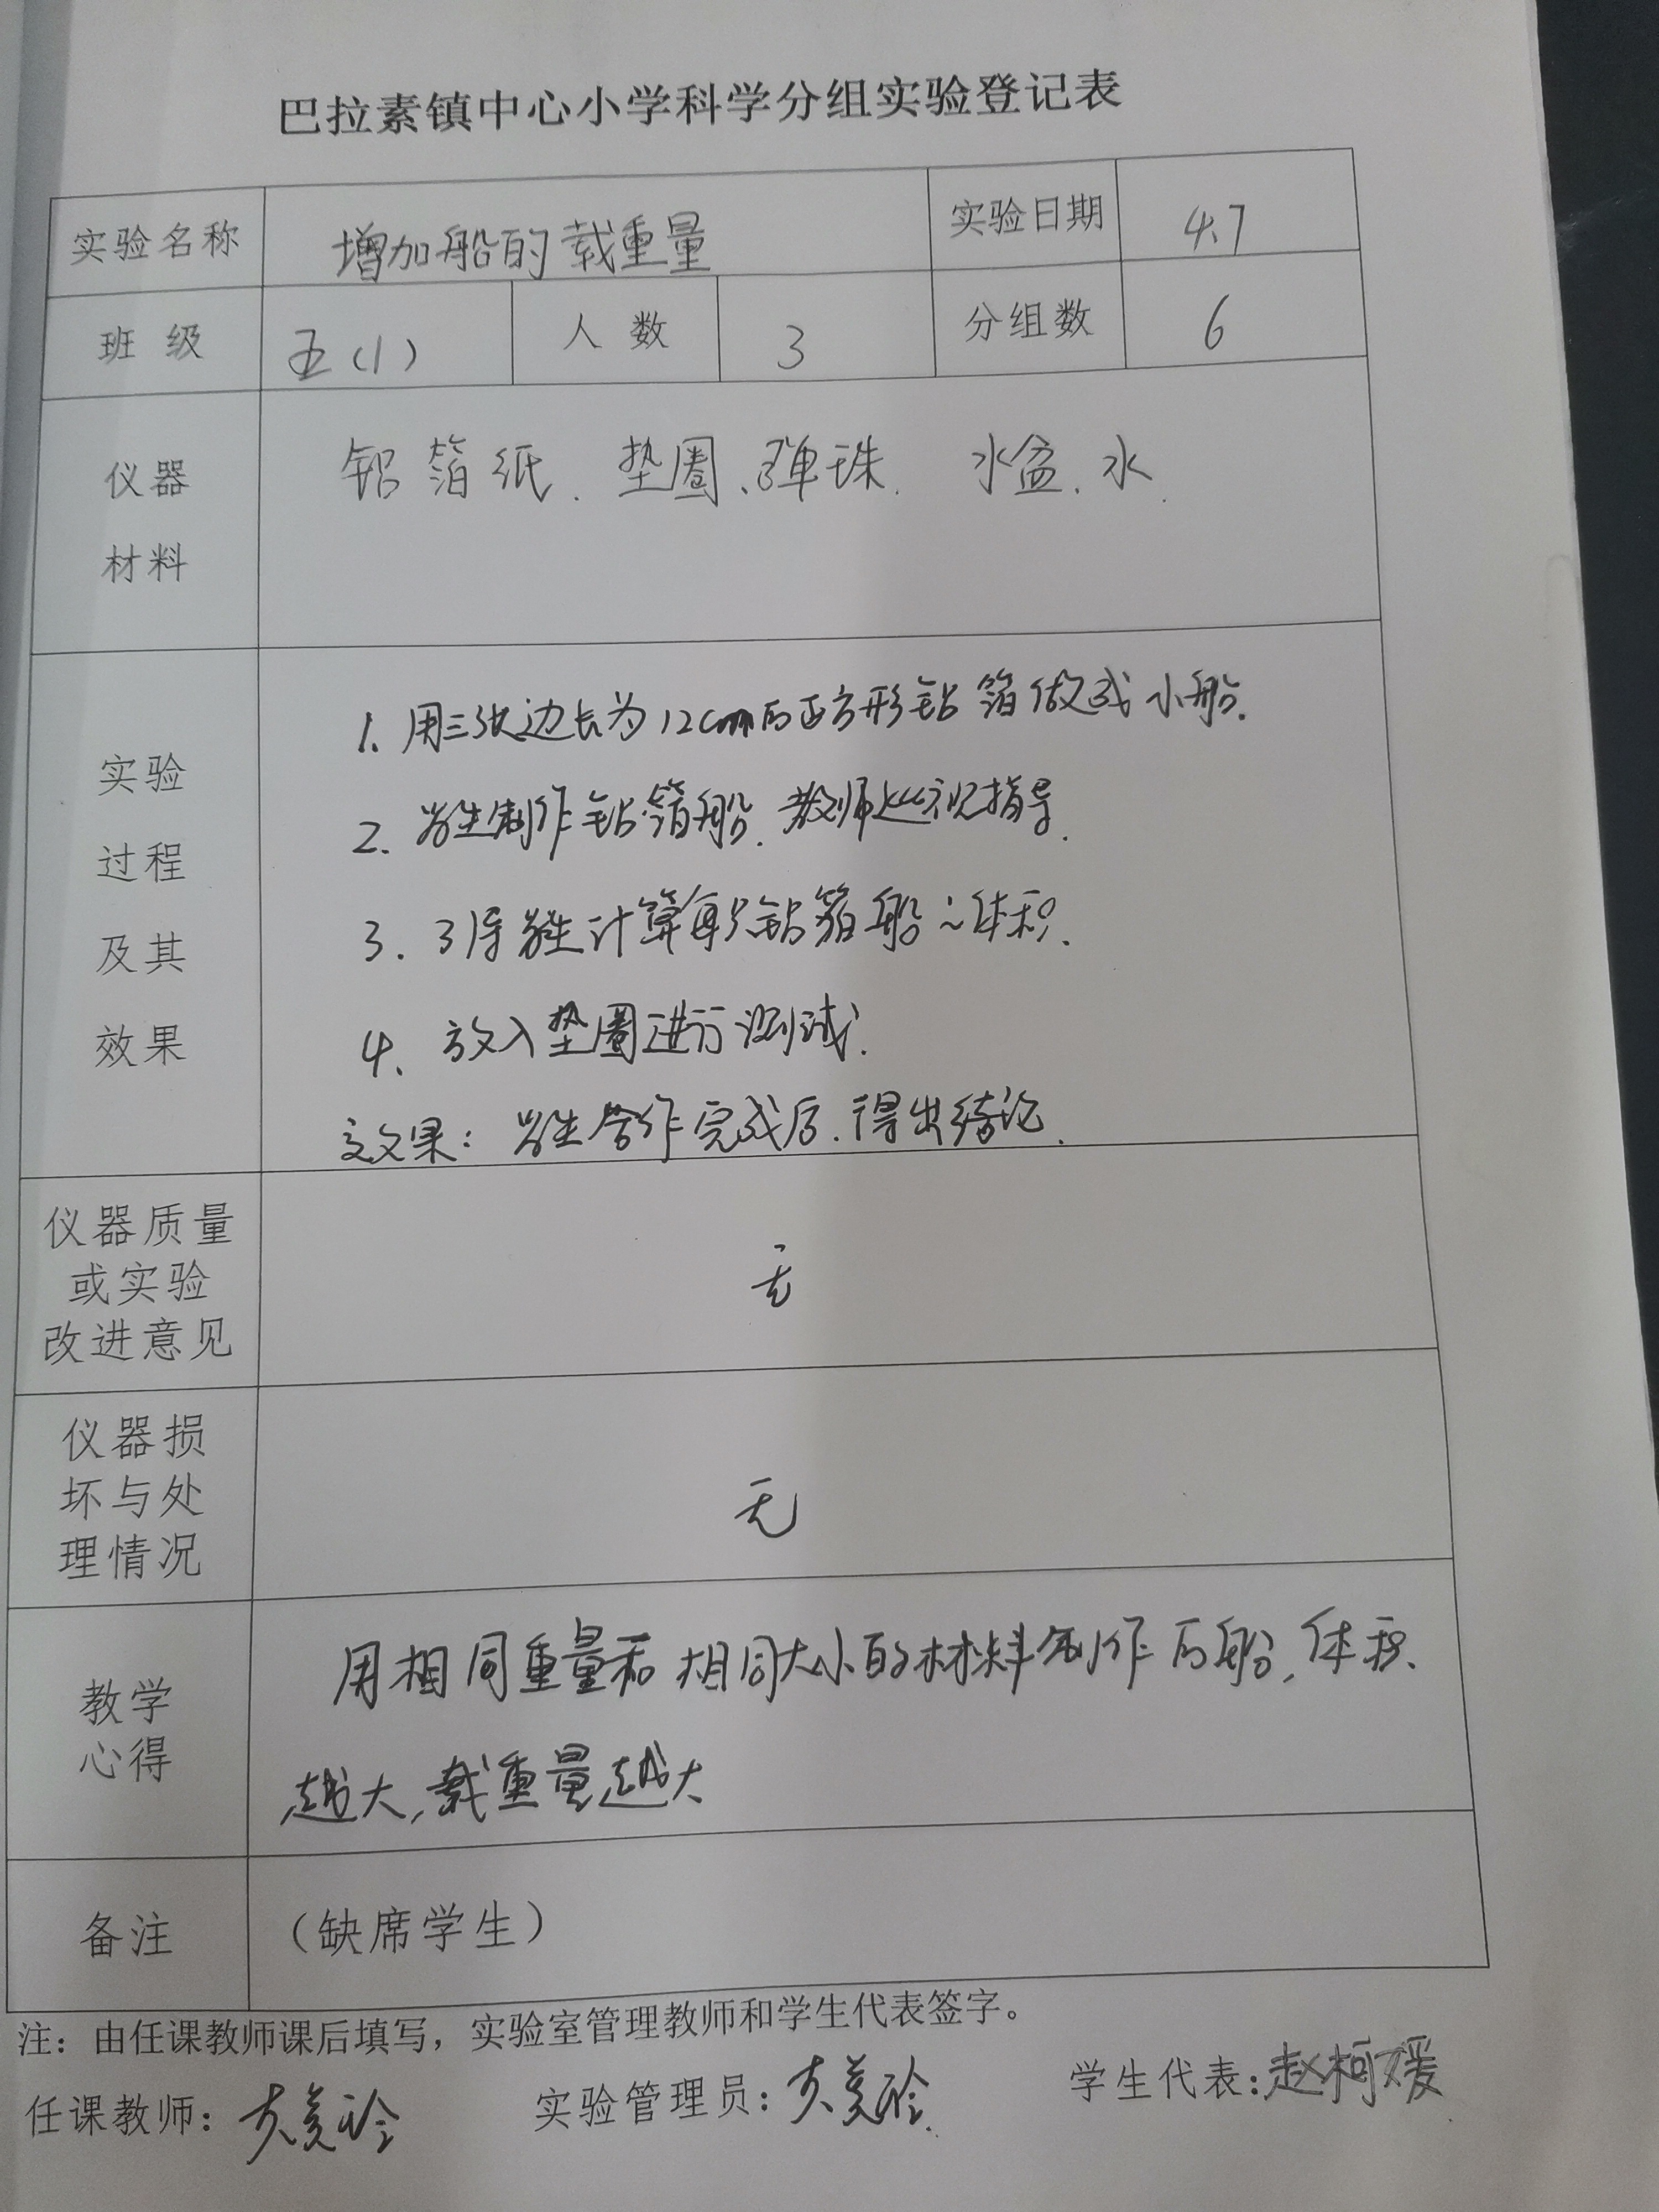 巴拉素镇中心小学科学分组实验登记表
实验名称 增加船的载重量 实验日期 4.7
班 级 五(1) 人 数 3 分组数 6
仪器
材料
铝箔纸、垫圈、弹珠、水盆、水.
实验
过程
及其
效果
1. 用三张边长为12cm的正方形铝箔做成小船.
2. 学生制作铝箔船. 教师巡视指导.
3. 引导学生计算每只铝箔船的体积.
4. 放入垫圈进行测试.
效果: 学生合作完成后. 得出结论.
仪器质量
或实验
改进意见
无
仪器损
坏与处
理情况
无
教学
心得
用相同重量和相同大小的材料制作的船, 体积
越大, 载重量越大
备注 (缺席学生)
注：由任课教师课后填写，实验室管理教师和学生代表签字。
任课教师: 实验管理员: 学生代表: 赵柯媛